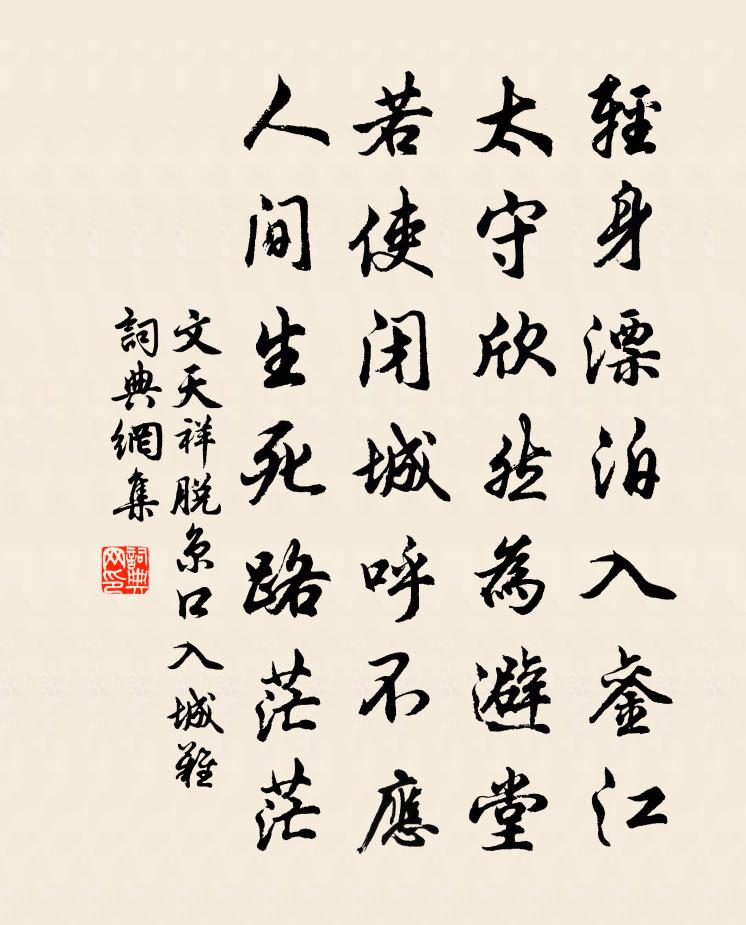 輕身漂泊入銮江
太守欣然為避堂
若使閉城呼不應
人間生死路茫茫
文天祥脱京口入城難
詞典網集
詞典网印